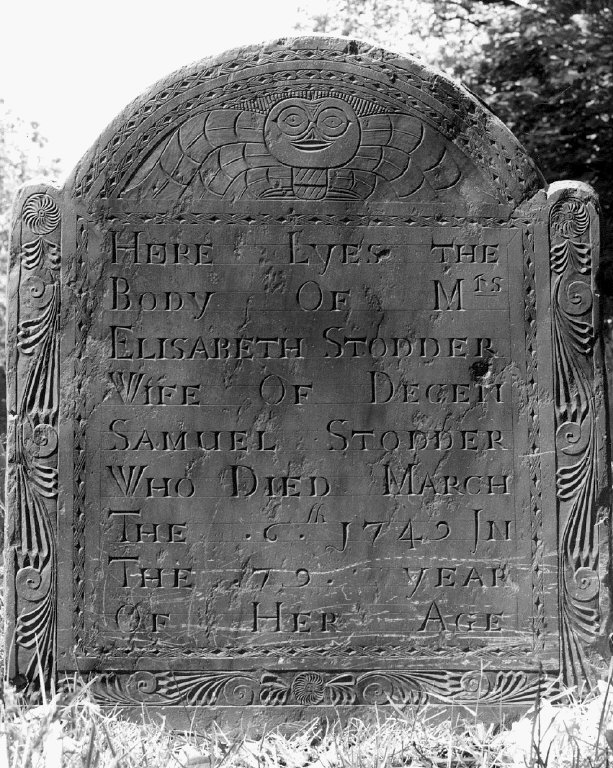 HERE LYES THE
BODY OF Mrs
ELISABETH STODDER
WIFE OF DECEN
SAMUEL STODDER
WHO DIED MARCH
THE . 6.th 1749 IN
THE . 79 . YEAR
OF HER AGE